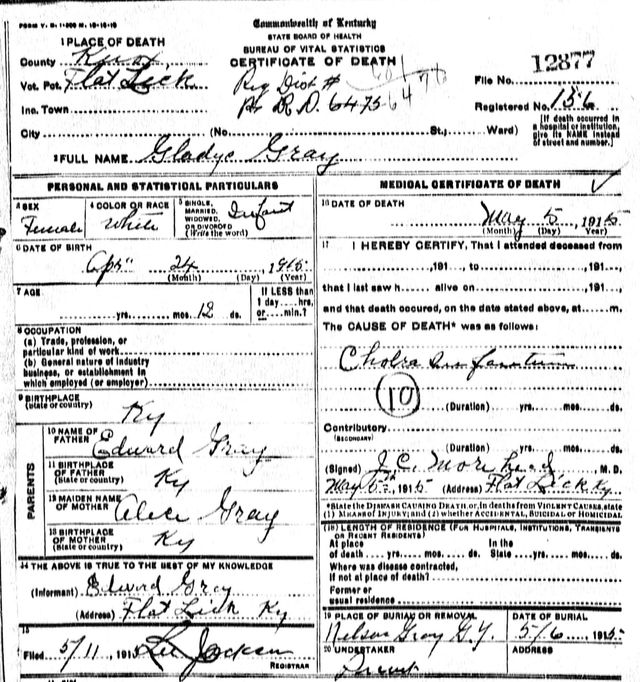 Commonwealth of Kentucky
STATE BOARD OF HEALTH
BUREAU OF VITAL STATISTICS
CERTIFICATE OF DEATH
1 PLACE OF DEATH
County Knox
Vot. Pct. Flat Lick
Inc. Town
Reg Dist #
6475
File No. 12877
Registered No. 136
[If death occurred in a hospital or institution, give its NAME instead of street and number.]
City (No. St., Ward)
2 FULL NAME Gladys Gray
PERSONAL AND STATISTICAL PARTICULARS
3 SEX Female
4 COLOR OR RACE White
5 SINGLE, MARRIED, WIDOWED, OR DIVORCED (Write the word) Infant
6 DATE OF BIRTH
Apr 24 1915
(Month) (Day) (Year)
7 AGE
If LESS than 1 day....hrs. or....min.?
yrs. mos. 12 ds.
8 OCCUPATION
(a) Trade, profession, or particular kind of work
(b) General nature of industry business, or establishment in which employed (or employer)
9 BIRTHPLACE
(State or country) Ky
PARENTS
10 NAME OF FATHER Edward Gray
11 BIRTHPLACE OF FATHER (State or country) Ky
12 MAIDEN NAME OF MOTHER Alice Gray
13 BIRTHPLACE OF MOTHER (State or country) Ky
14 THE ABOVE IS TRUE TO THE BEST OF MY KNOWLEDGE
(Informant) Edward Gray
(Address) Flat Lick Ky
15
Filed 5/11, 1915 Lee Jackson
REGISTRAR
MEDICAL CERTIFICATE OF DEATH
16 DATE OF DEATH
May 5, 1915
(Month) (Day) (Year)
17 I HEREBY CERTIFY, That I attended deceased from
, 191 , to , 191...,
that I last saw h alive on , 191...,
and that death occured, on the date stated above, at......m.
The CAUSE OF DEATH* was as follows:
Cholra Infantum
10
(Duration) yrs. mos. ds.
Contributory
(SECONDARY)
(Duration) yrs. mos. ds.
(Signed) J. C. Morehead, M. D.
May 5th, 1915 (Address) Flat Lick Ky
*State the DISEASE CAUSING DEATH, or, in deaths from VIOLENT CAUSES, state (1) MEANS OF INJURY; and (2) whether ACCIDENTAL, SUICIDAL or HOMICIDAL
18 LENGTH OF RESIDENCE (FOR HOSPITALS, INSTITUTIONS, TRANSIENTS OR RECENT RESIDENTS)
At place of death yrs. mos. ds. In the State yrs. mos. ds.
Where was disease contracted, if not at place of death?
Former or usual residence
19 PLACE OF BURIAL OR REMOVAL
Nelson Gray G.Y.
DATE OF BURIAL
5/6 1915
20 UNDERTAKER
ADDRESS